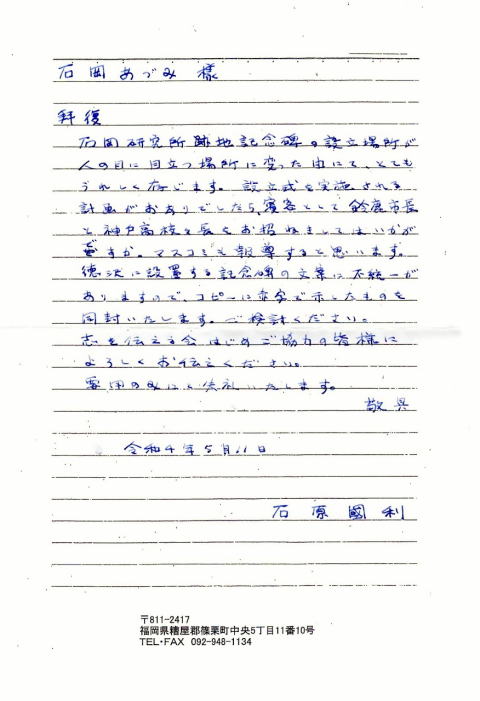 石岡あづみ 様
拝復
石岡研究所跡地記念碑の設立場所が
人の目に目立つ場所に変った由にて、とても
うれしく存じます。設立式を実施される
計画がおありでしたら、賓客として鈴鹿市長
と神戸高校々長をお招ねきしてはいかが
ですか。マスコミも報導すると思います。
徳沢に設置する記念碑の文案に不統一が
ありますので、コピーに赤字で示したものを
同封いたします。ご検討ください。
志を伝える会はじめご協力の皆様に
よろしくお伝えください。
要用のみにて失礼いたします。
敬具
令和4年5月11日
石原國利
〒811-2417
福岡県糟屋郡篠栗町中央5丁目11番10号
TEL・FAX 092-948-1134